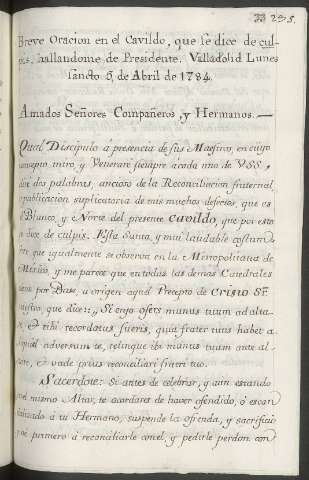 235.
Breve Oracion en el Cavildo, que se dice de cul-
pis, hallandome de Presidente. Valladolid Lunes
Sancto 5 de Abril de 1784.
Amados Señores Compañeros, y Hermanos.—
Qual Discipulo à presencia de sus Maestros, en cuyo
concepto miro, y Venerare siempre à cada uno de VSS,
dirè dos palabras, ancioso de la Reconciliacion fraternal,
publicacion suplicatoria de mis muchos defectos, que es
Blanco, y Norte del presente Cavildo, que por esto
se dice de culpis. Esta Santa, y mui laudable costum-
bre que igualmente se observa en la Metropolitana de
Mexico, y me parece que en todas las demas Cathedrales
tiene por Basa, u origen aquel Precepto de Cristo Sr.
nuestro, que dice: Si ergo ofers munus tuum ad alta-
re, et tibi recordatus fueris, quia frater tuus habet a-
liquid adversum te, relinque ibi munus tuum ante al-
tare, et vade prius reconciliari fratri tuo.
Sacerdote: Si antes de celebrar, y aun estando
en el mismo Altar, te acordares de haver ofendido, ó escan-
dalizado à tu Hermano, suspende la ofrenda, y sacrificio
ve primero à reconciliarte con el, y pedirle perdon: con